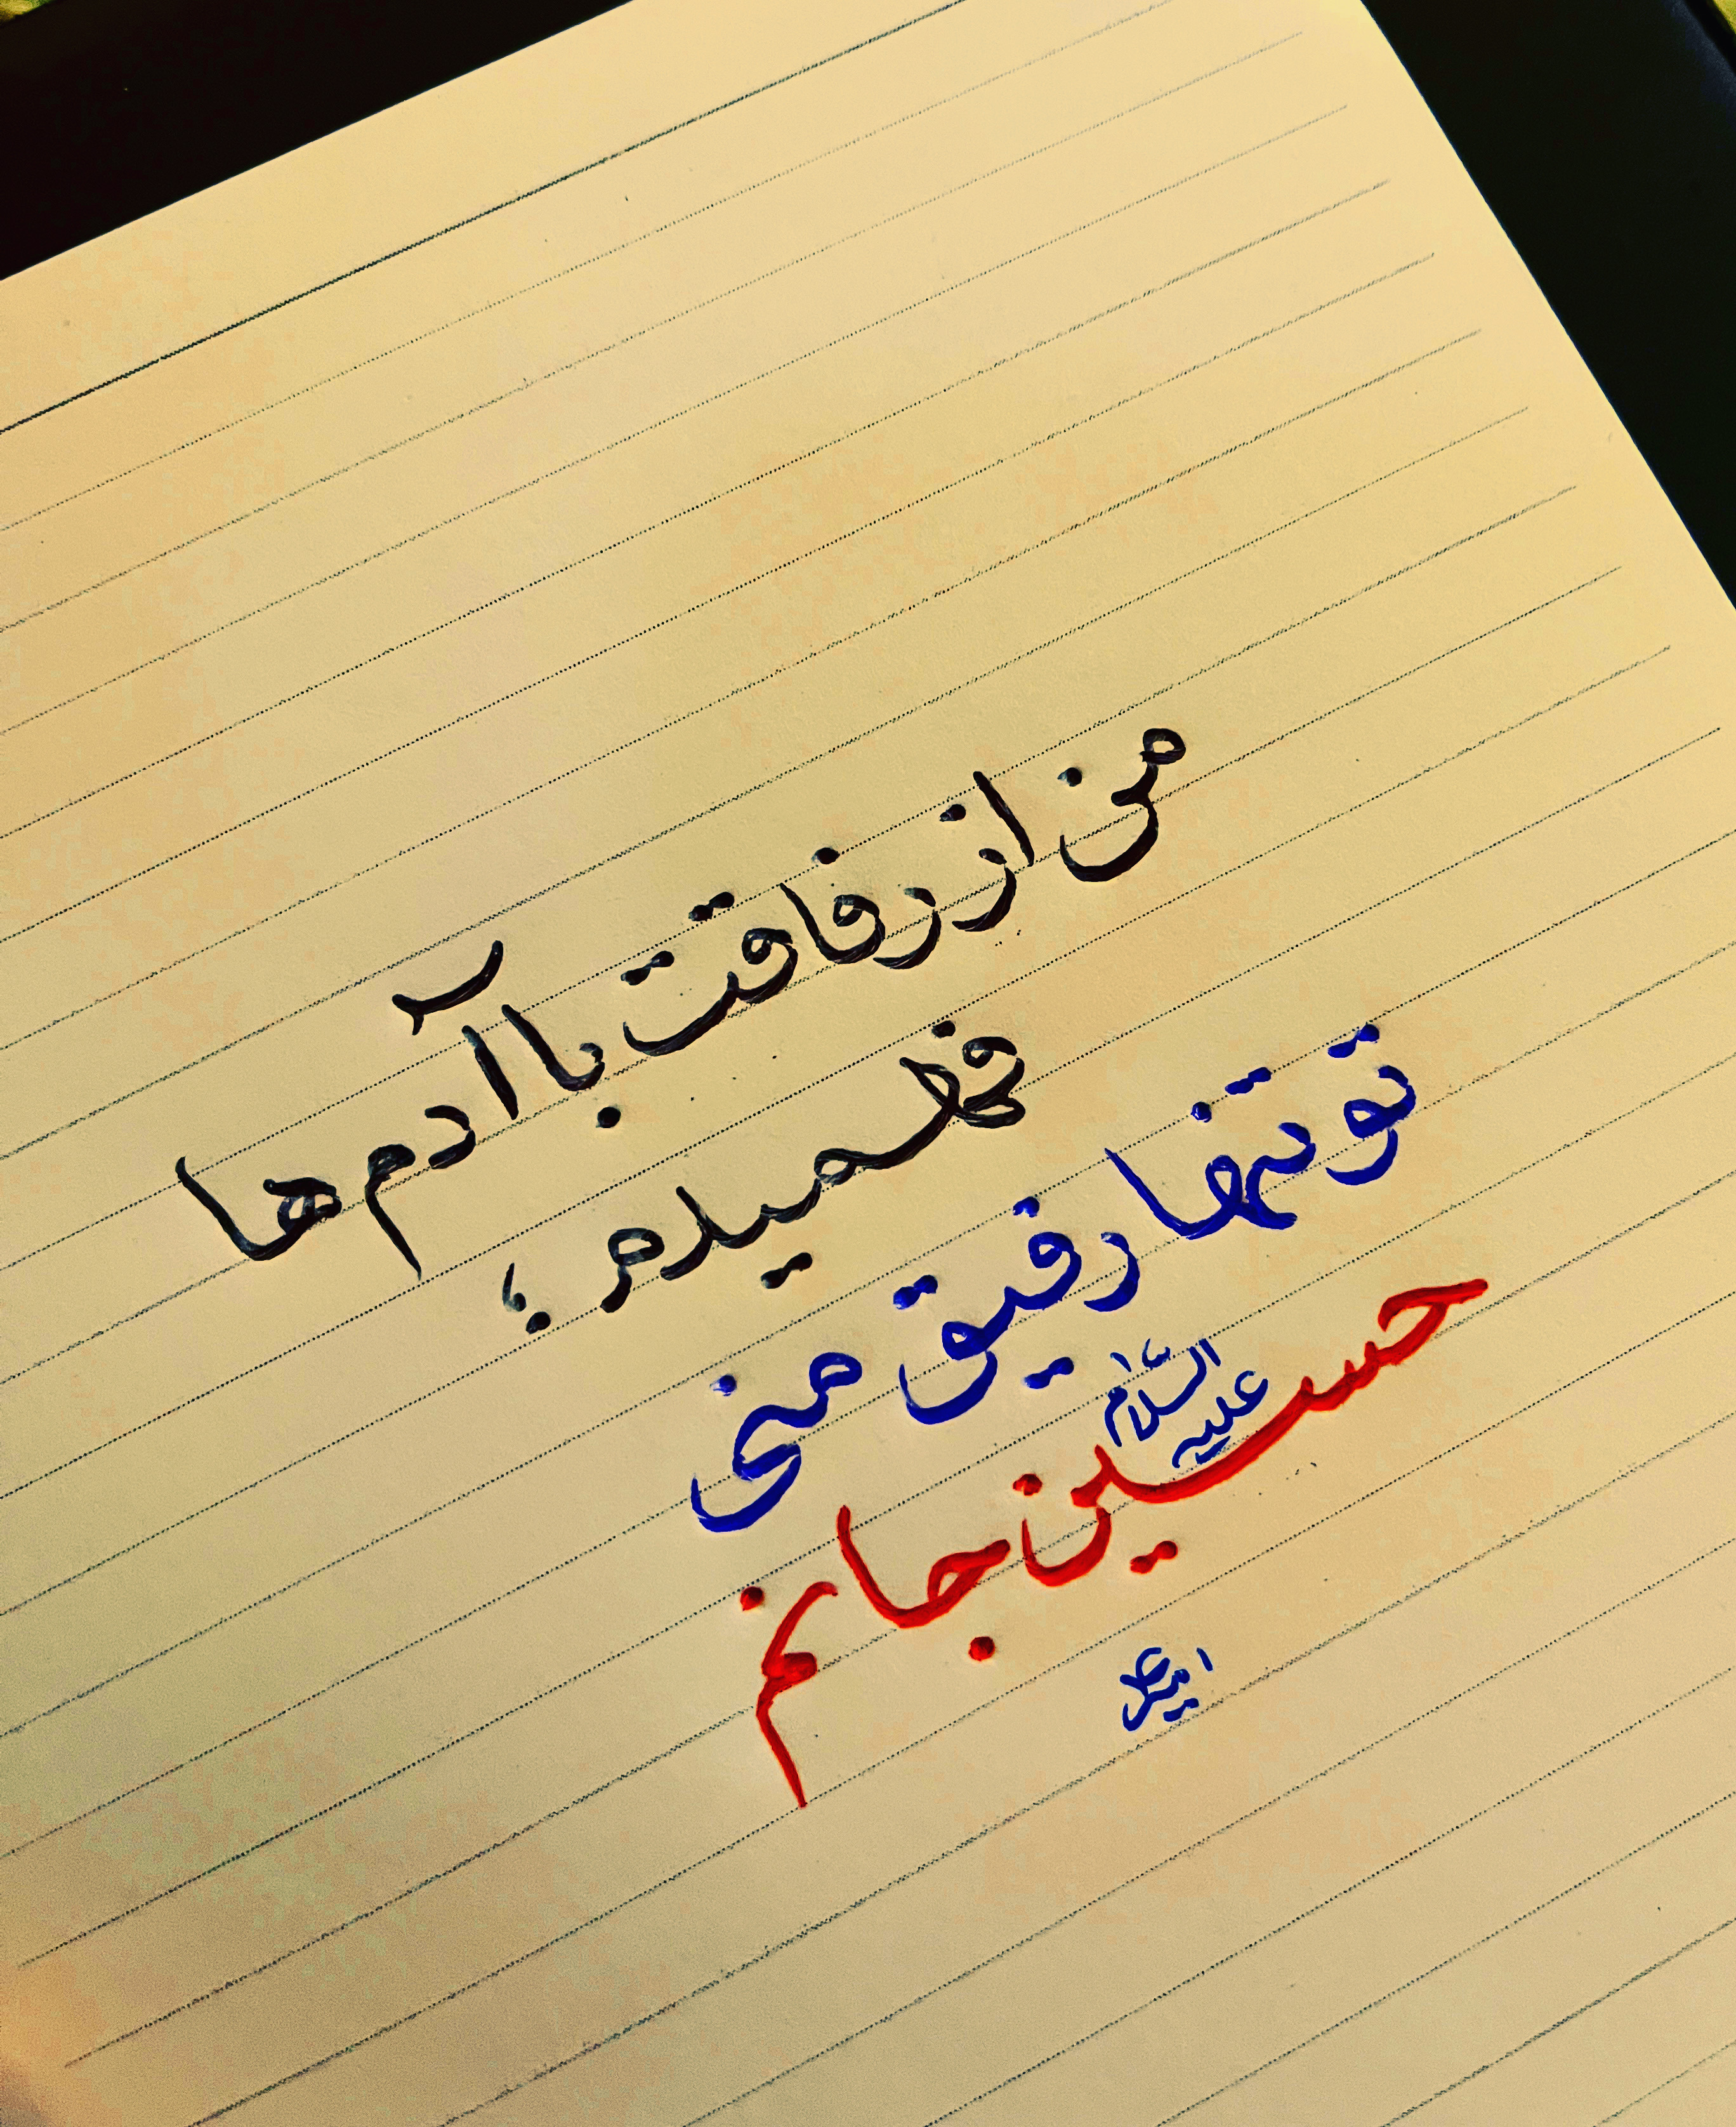 من از رفاقت با آدم ها
فهمیده ؛
تو تنها رفیق منی
حسین علیه السّلام جانم